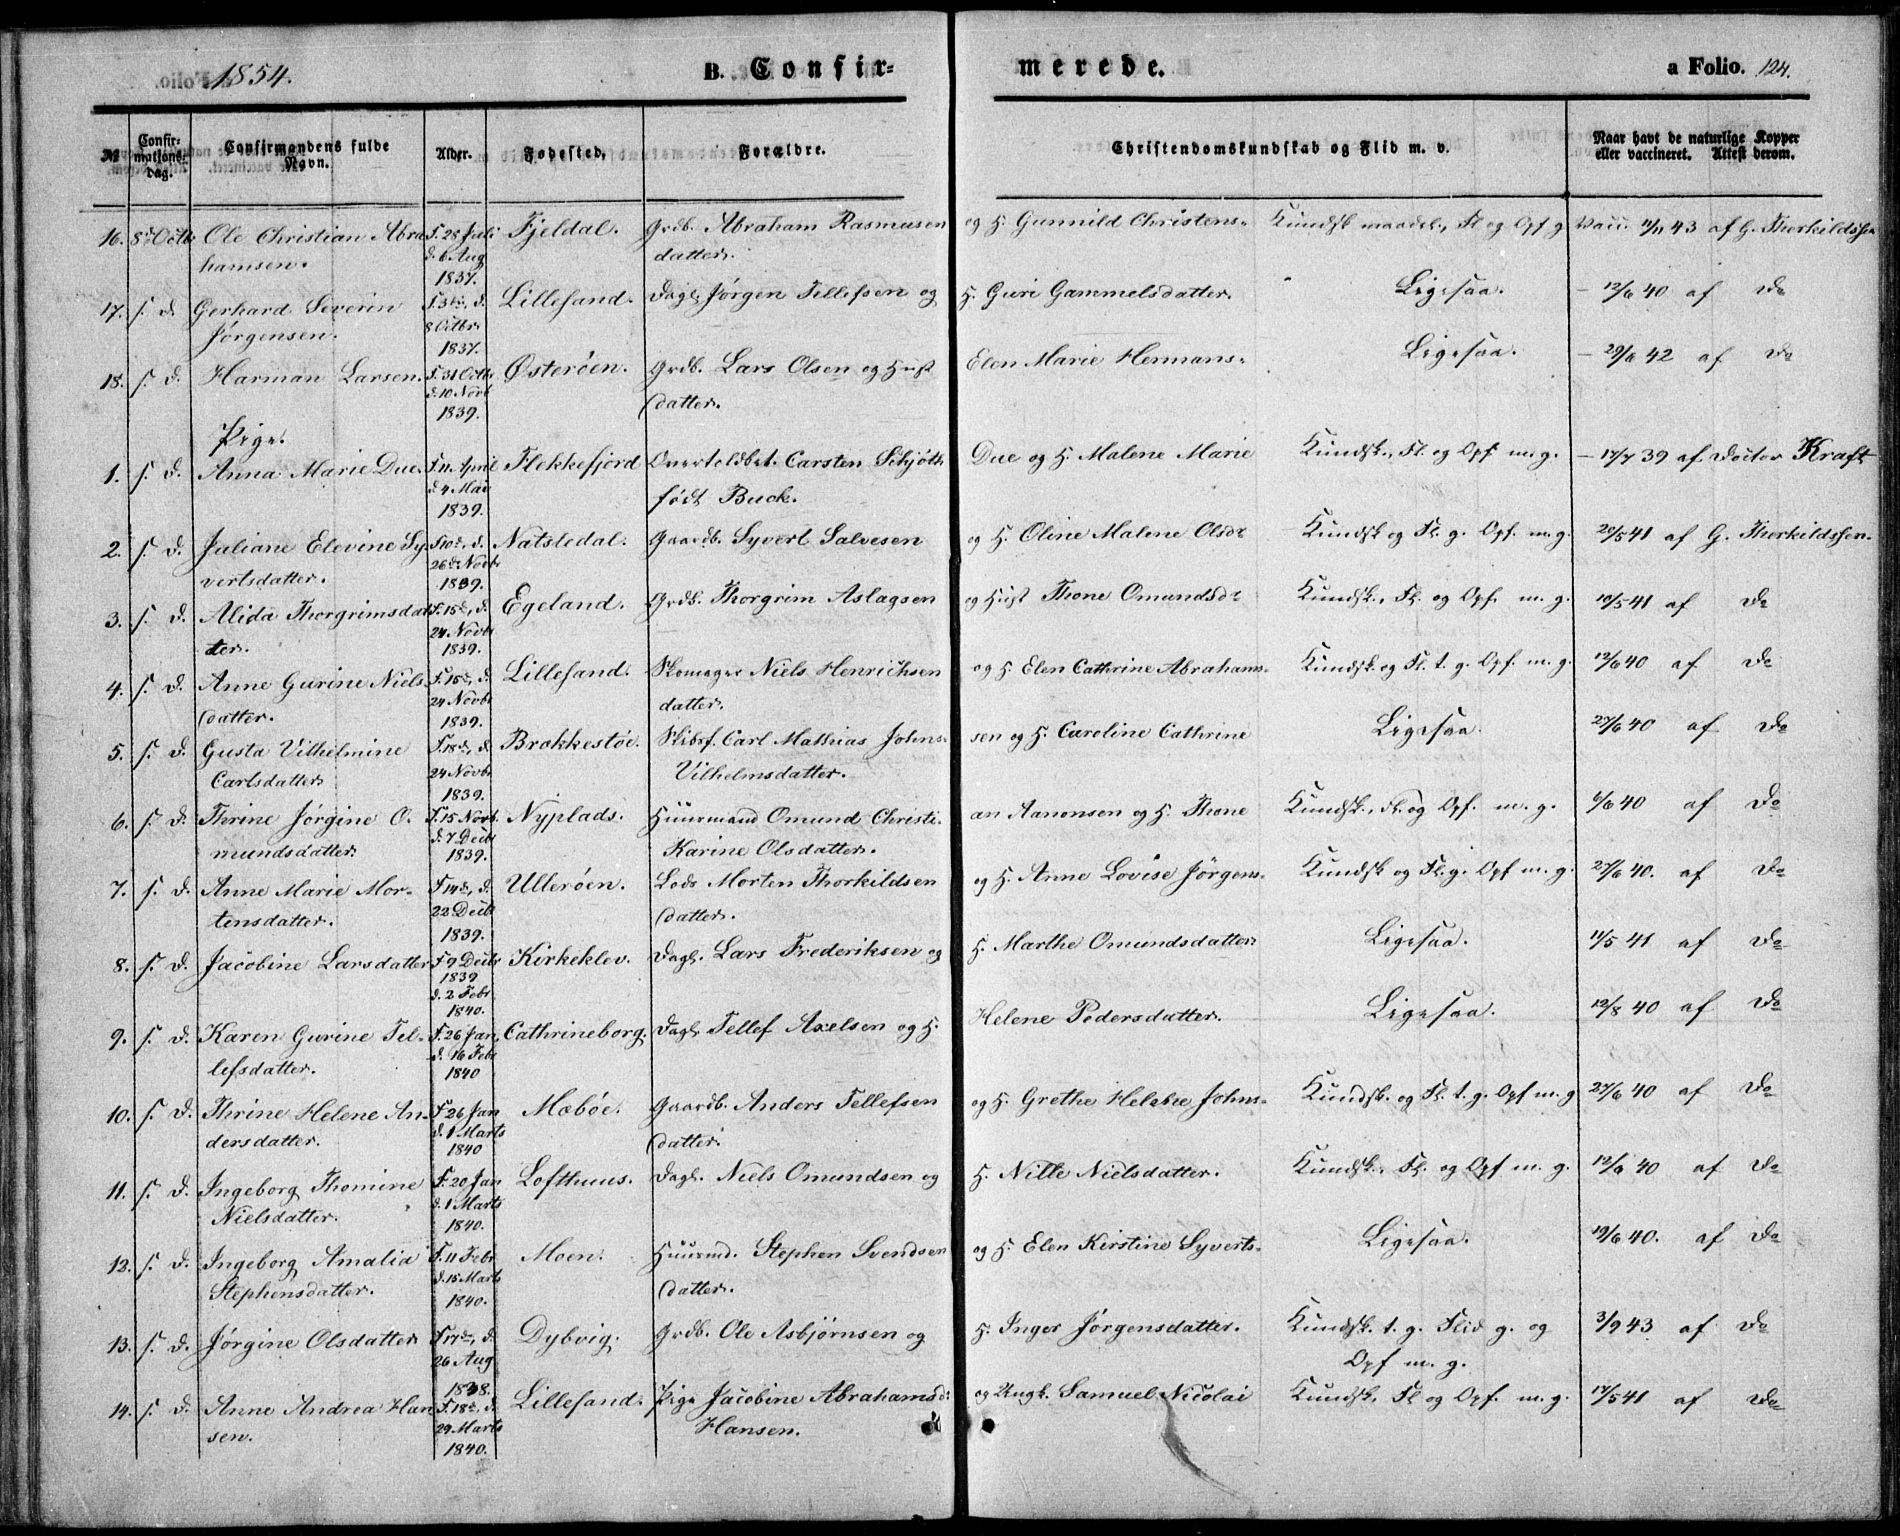 1854.
B. Confir-
merede.
a Folio. 124.
No
Confir-
mations-
dag.
Confirmandens fulde
Navn.
Alder.
Fødested.
Forældre.
Christendomskundskab og Flid m. v.
Naar havt de naturlige Kopper
eller vaccineret. Attest derom.
16. 8de Octb. Ole Christian Abra F. 28 Juli Fjeldal. Grdb. Abraham Rasmusen og H. Gunnild Christens- Kundsk maadel., Fl og Opf g Vacc. 11/11 43 af G. Therkildssen
hamsen. d. 6 Aug datter.
1837.
17. s. d. Gerhard Severin F. 3de, d. Lillesand. Dagl. Jørgen Tellefsen og H. Guri Gammelsdatter. Ligesaa. - 12/6 40 af do
Jørgensen. 8 Octbr.
1837.
18. s. d. Harman Larsen. F. 31 Octb Østerøen. Grdb. Lars Olsen og Hust Elen Marie Hermans- Ligesaa. - 29/6 42 af do
d. 10 Novb datter.
1839.
Pige.
1. s. d. Anna Marie Due. F. 11. April Flekkefjord Overtoldbet. Carsten Schjøth Due og H. Malene Marie Kundsk., Fl. og Opf m. g. - 17/7 39 af Doctor Kraft
d. 4 Mai født Buck.
1839.
2. s. d. Juliane Elevine Sy. F 10de, d. Natsledal. Gaardb. Syvert Salvesen og H. Oline Malene Olsdr Kundsk og Fl. g. Opf. m. g. 20/5 41 af G. Therkildssen.
vertsdatter. 26de Novb.
1839.
3. s. d. Alida Thorgrimsdat F. 15de, d. Egeland. Grdb. Thorgrim Aslagsen og Hust Thone Omundsdr Kundsk., Fl. og Opf. m. g. 10/5 41 af do
ter. 24. Novb.
1839.
4. s. d. Anne Gurine Niels F. 15de, d. Lillesand. Skomager Niels Henrichsen og H. Elen Cathrine Abrahams- Kundsk og Fl. t. g. Opf. m. g. 12/6 40 af do
datter. 24 Novb. datter.
1839.
5. s. d. Gusta Vilhelmine F. 18de, d. Brokkestøe. Skibsf. Carl Mathias Johns- sen og H. Caroline Cathrine Ligesaa. 27/6 40 af do
Carlsdatter 24 Novb. Vilhelmsdatter.
1839.
6. s. d. Thrine Jørgine O. F. 15 Novb. Nyplads. Huurmand Omund Christi- an Aanonsen og H. Thone Kundsk., Fl. og Opf. m. g. 6/6 40 af do
mundsdatter d. 7 Decb Karine Olsdatter.
1839.
7. s. d. Anne Marie Mor- F 14de, d. Ullerøen. Lods Morten Thorkildsen og H. Anne Lovise Jørgens- Kundsk og Fl. g. Opf m. g. 27/6 40. af do
tensdatter. 22 Decb datter.
1839.
8. s. d. Jacobine Larsdatter F 9 Decb Kirkeklev. Dagl. Lars Frederiksen og H. Marthe Omundsdatter Ligesaa. 11/5 41 af do
1839
d. 2 Febr
1840.
9. s. d. Karen Gurine Tel- F. 26 Jan, Cathrineborg. Dagl. Tellef Axelsen og H. Helene Pedersdatter. Ligesaa. 12/8 40 af do
lefsdatter. d. 16 Febr
1840
10. s. d. Thrine Helene An- F. 26 Jan Mæbøe. Gaardb. Anders Tellefsen og H. Grethe Helene Johns- Kundsk. og Fl. t. g. Opf m. g 27/6 40 af do
dersdatter. d. 1 Marts datter.
1840
11. s. d. Ingeborg Thomine F. 20 Jan Lofthuus. Dagl. Niels Omundsen og H. Nille Nielsdatter. Kundsk., Fl. og Opf m. g. 12/6 40 af do
Nielsdatter. d. 1 Marts
1840.
12. s. d. Ingeborg Amalia F. 11 Febr Moen. Huusmd. Stephen Svendsen og H. Elen Kirstine Syverts- Ligesaa. 19/6 40. af do
Stephensdatter. d. 15 Marts datter.
1840.
13. s. d. Jørgine Olsdatter F 17de, d. Dybvig. Grdb. Ole Asbjørnsen og H. Inger Jørgensdatter. Kundsk. t. g. Flid g. og 3/9 43 af do
26 Aug Opf m. g.
1838.
14. s. d. Anne Andrea Han F. 18de, d. Lillesand. Pige Jacobine Abrahamsdr og Ungk. Samuel Nicolai Kundsk, Fl og Opf. m. g. 17/5 41 af do
sen. 29 Marts Hansen.
1840.